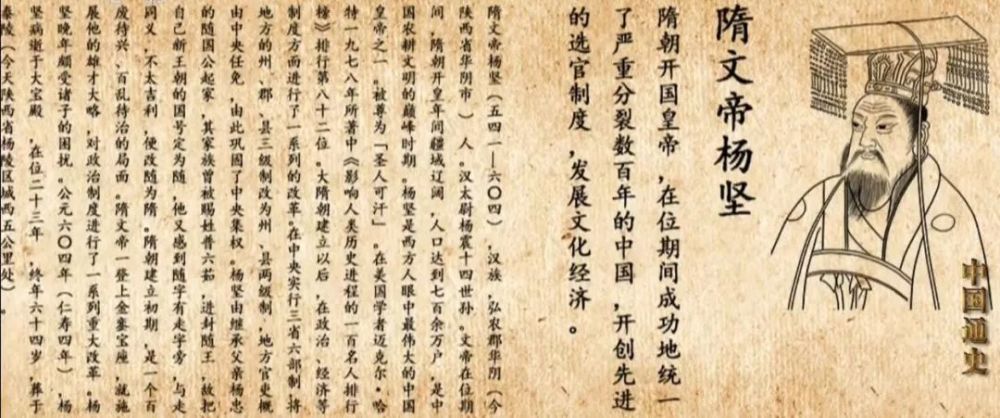 中国通史
隋文帝杨坚
隋朝开国皇帝，在位期间成功地统一
了严重分裂数百年的中国，开创先进
的选官制度，发展文化经济。
隋文帝杨坚（五四一—六〇四），汉族，弘农郡华阴（今
陕西省华阴市）人。汉太尉杨震十四世孙。文帝在位期
间，隋朝开皇年间疆域辽阔，人口达到七百余万户，是中
国农耕文明的巅峰时期。杨坚是西方人眼中最伟大的中国
皇帝之一。被尊为「圣人可汗」。在美国学者迈克尔·哈
特一九七八年所著中《影响人类历史进程的一百名人排行
榜》排行第八十二位。大隋朝建立以后，在政治、经济等
制度方面进行了一系列的改革。在中央实行三省六部制，将
地方的州、郡、县三级制改为州、县两级制，地方官吏概
由中央任免，由此巩固了中央集权。杨坚由继承父亲杨忠
的随国公起家，其家族曾被赐姓普六茹，进封随王，故把
自己新王朝的国号定为随，他又感到随字有走字旁，与走
同义，不太吉利，便改随为隋。隋朝建立初期，是一个百
废待兴、百乱待治的局面。隋文帝一登上金銮宝座，就施
展他的雄才大略，对政治制度进行了一系列重大改革。杨
坚晚年颇受诸子的困扰。公元六〇四年（仁寿四年），杨
坚病逝于大宝殿，在位二十三年，终年六十四岁，葬于
泰陵（今天陕西省杨陵区城西五公里处）。